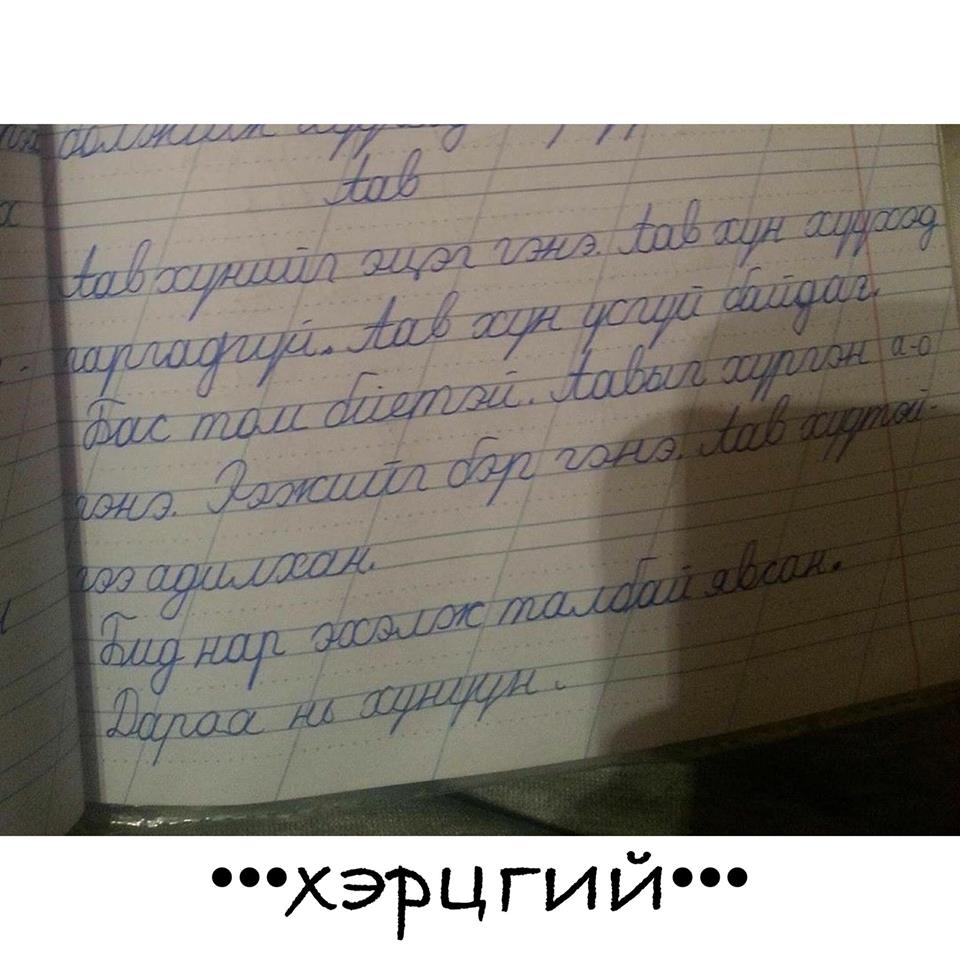 Аав
Аав хүнийг эцэг гэнэ. Аав хүн хүүхэд
гаргадгүй. Аав хүн үсгүй байдаг.
Бас том биетэй. Аавыг хүргэн а-о
гэнэ. Ээжийг бэр гэнэ. Аав хүдтэй-
гээ адилхан.
Бид нар эхэлж талбай явсан.
Дараа нь
•••хэрцгий•••